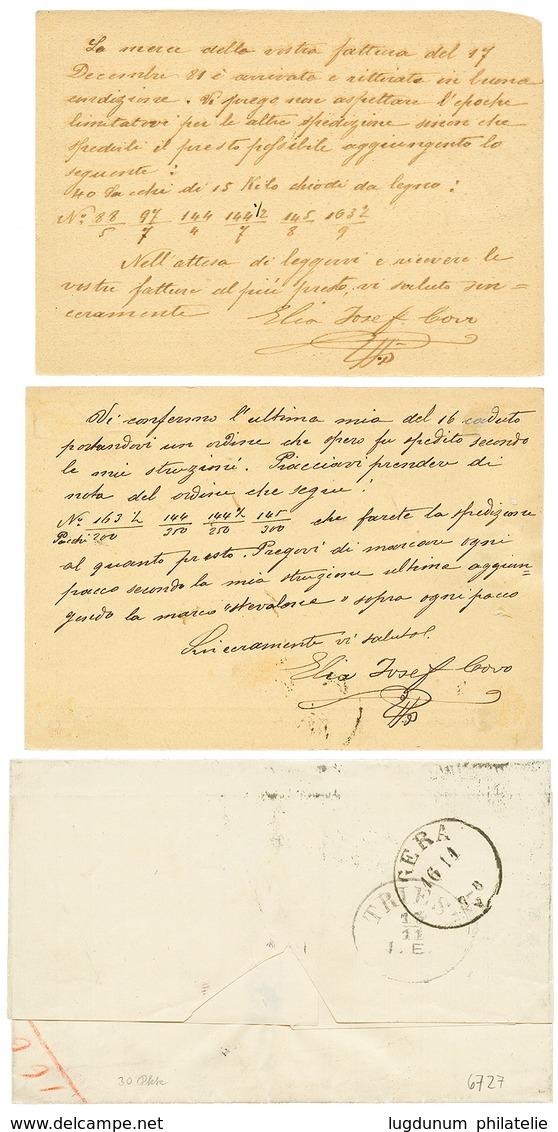 La merce della vostra fattura del 17
Decembre 81 è arrivata e rittirata in buona
condizione. Vi prego non aspettare l'epoche
limitatovi per le altre spedizione sinon che
spedirle il presto possibile aggiungento lo
seguente :
40 Sacchi di 15 Kilo chiodi da legno :
No 88/5 97/7 144/4 144½/7 145/8 163½/9
Nell'attesa di leggervi e ricevere le
vostre fatture al più presto, vi saluto sin=
ceramente Elia Josef Covo
Vi confermo l'ultima mia del 16 caduto
portandovi un ordine che spero fu spedito secondo
le mie struzioni. Piacciavi prendere di
nota del ordine che segue :
No 163½ 144 144½ 145 che farete la spedizione
Pacchi 200 350 250 300
al quanto presto. Pregovi di marcare ogni
pacco secondo la mia struzione ultima aggiun=
gendo la marca sopra ogni pacco
Sinceramente vi saluto!
Elia Josef Covo
GERA
16 11
TRIEST
13
11
I. E.
30 6727
lugdunum philatelie